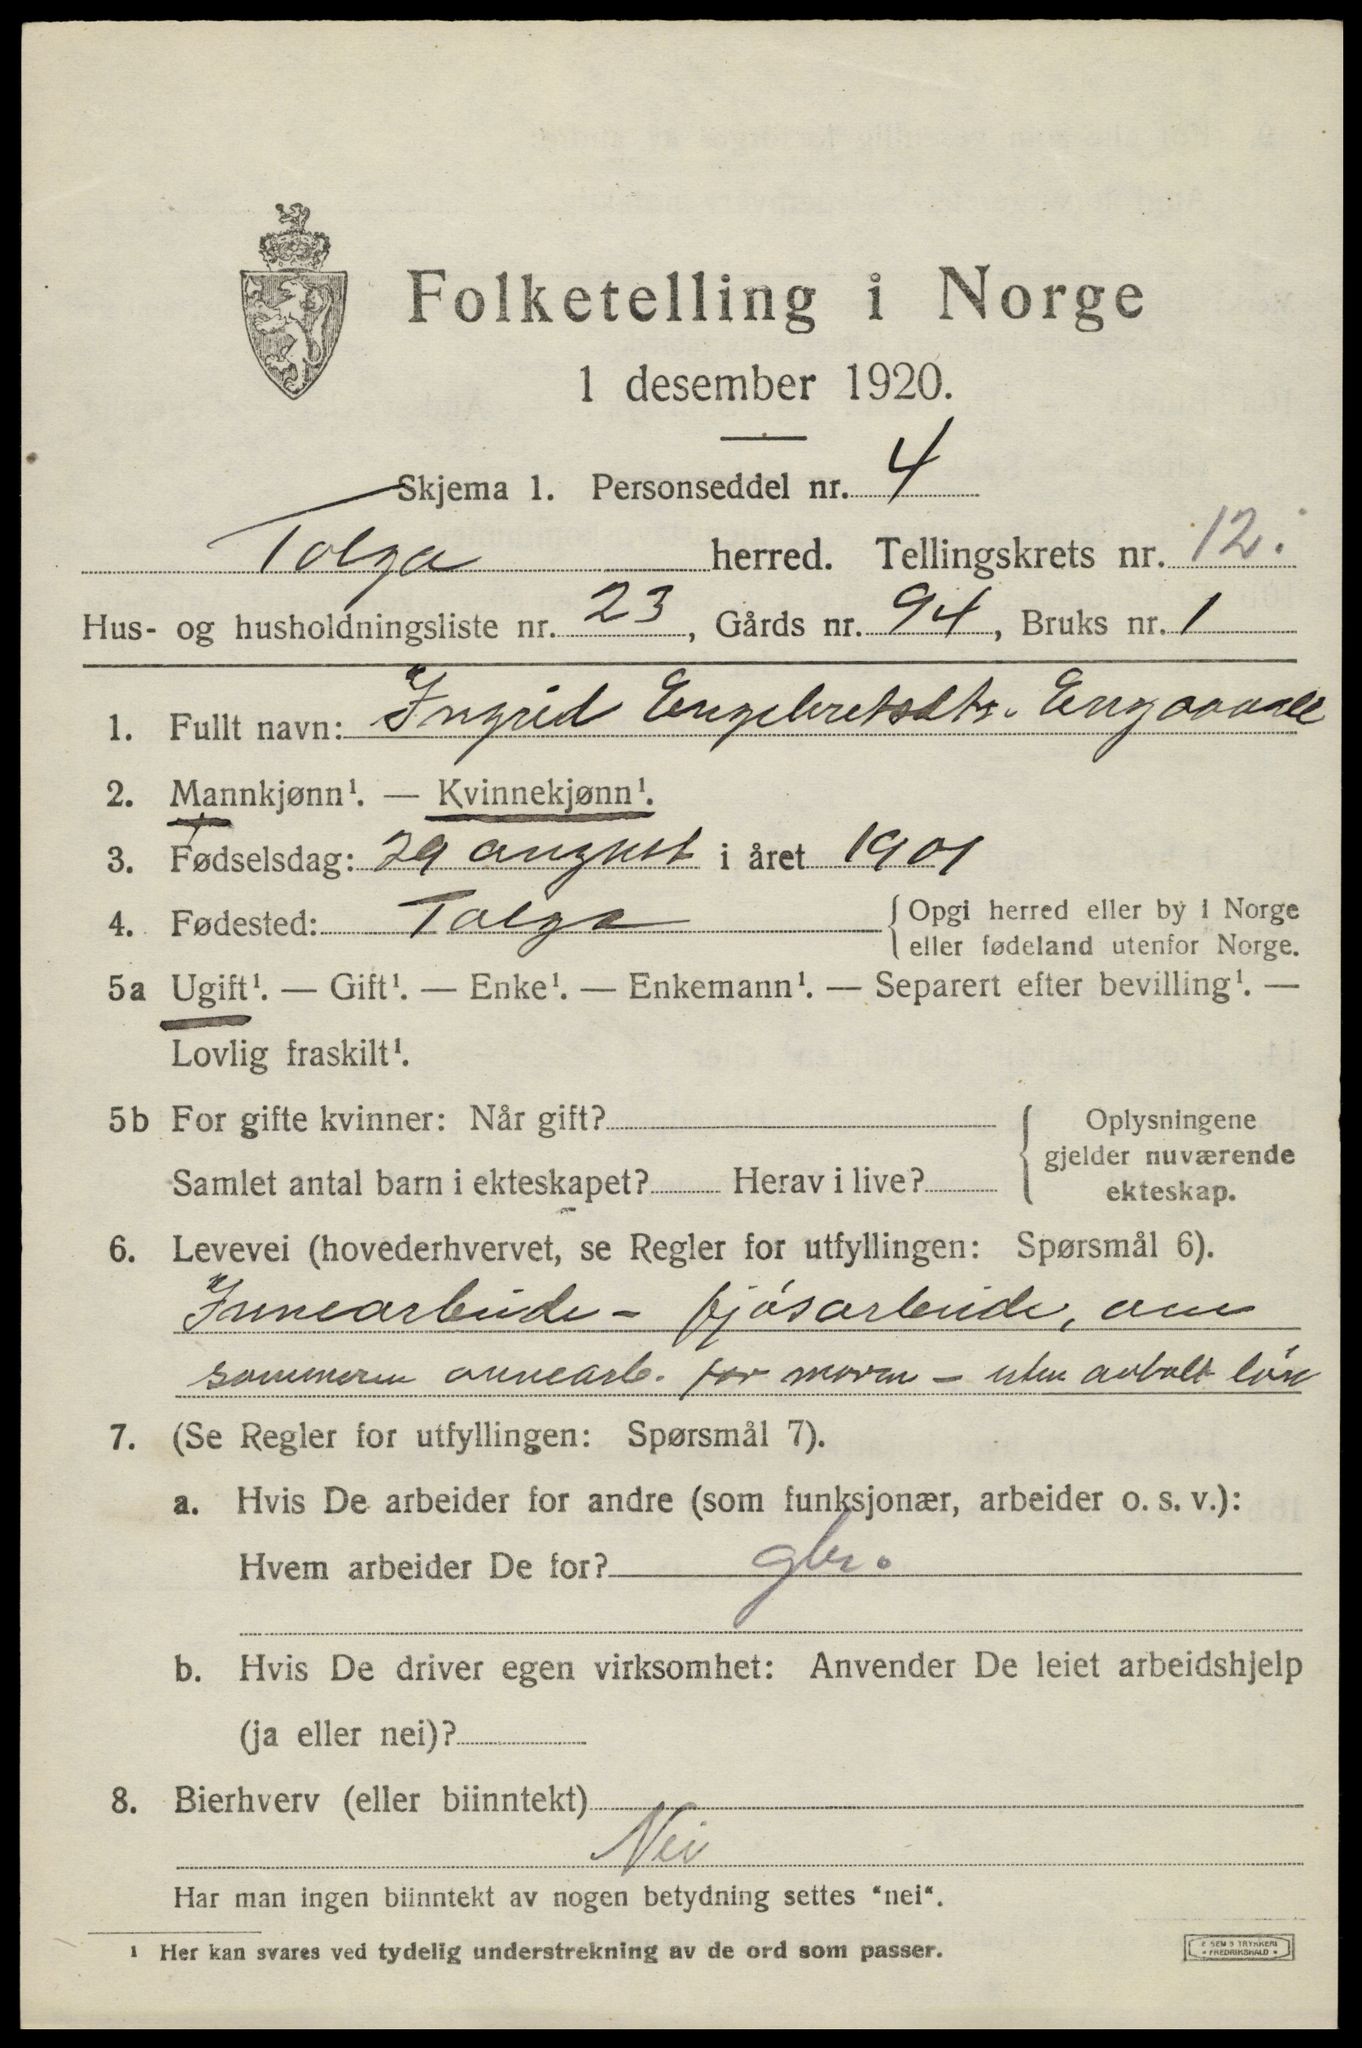 Folketelling i Norge
1 desember 1920.
Skjema 1. Personseddel nr. 4
Tolga herred. Tellingskrets nr. 12.
Hus- og husholdningsliste nr. 23, Gårds nr. 94, Bruks nr. 1
1. Fullt navn: Ingrid Engebretsdtr.
2. Mannkjønn¹. — Kvinnekjønn¹.
3. Fødselsdag: 29 august i året 1901
4. Fødested: Tolga {Opgi herred eller by i Norge
eller fødeland utenfor Norge.
5a Ugift¹. — Gift¹. — Enke¹. — Enkemann¹. — Separert efter bevilling¹. —
Lovlig fraskilt¹.
5b For gifte kvinner: Når gift? { Oplysningene
gjelder nuværende
Samlet antal barn i ekteskapet? Herav i live? ekteskap.
6. Levevei (hovederhvervet, se Regler for utfyllingen: Spørsmål 6).
Innearbeide - fjøsarbeide, om
sommeren onnearb. for moren - uten avtalt løn
7. (Se Regler for utfyllingen: Spørsmål 7).
a. Hvis De arbeider for andre (som funksjonær, arbeider o. s. v.):
Hvem arbeider De for? gbr.
b. Hvis De driver egen virksomhet: Anvender De leiet arbeidshjelp
(ja eller nei)?
8. Bierhverv (eller biinntekt)
Nei
Har man ingen biinntekt av nogen betydning settes "nei".
¹ Her kan svares ved tydelig understrekning av de ord som passer.
E SEM'S TRYKKERI
FREDRIKSHALD